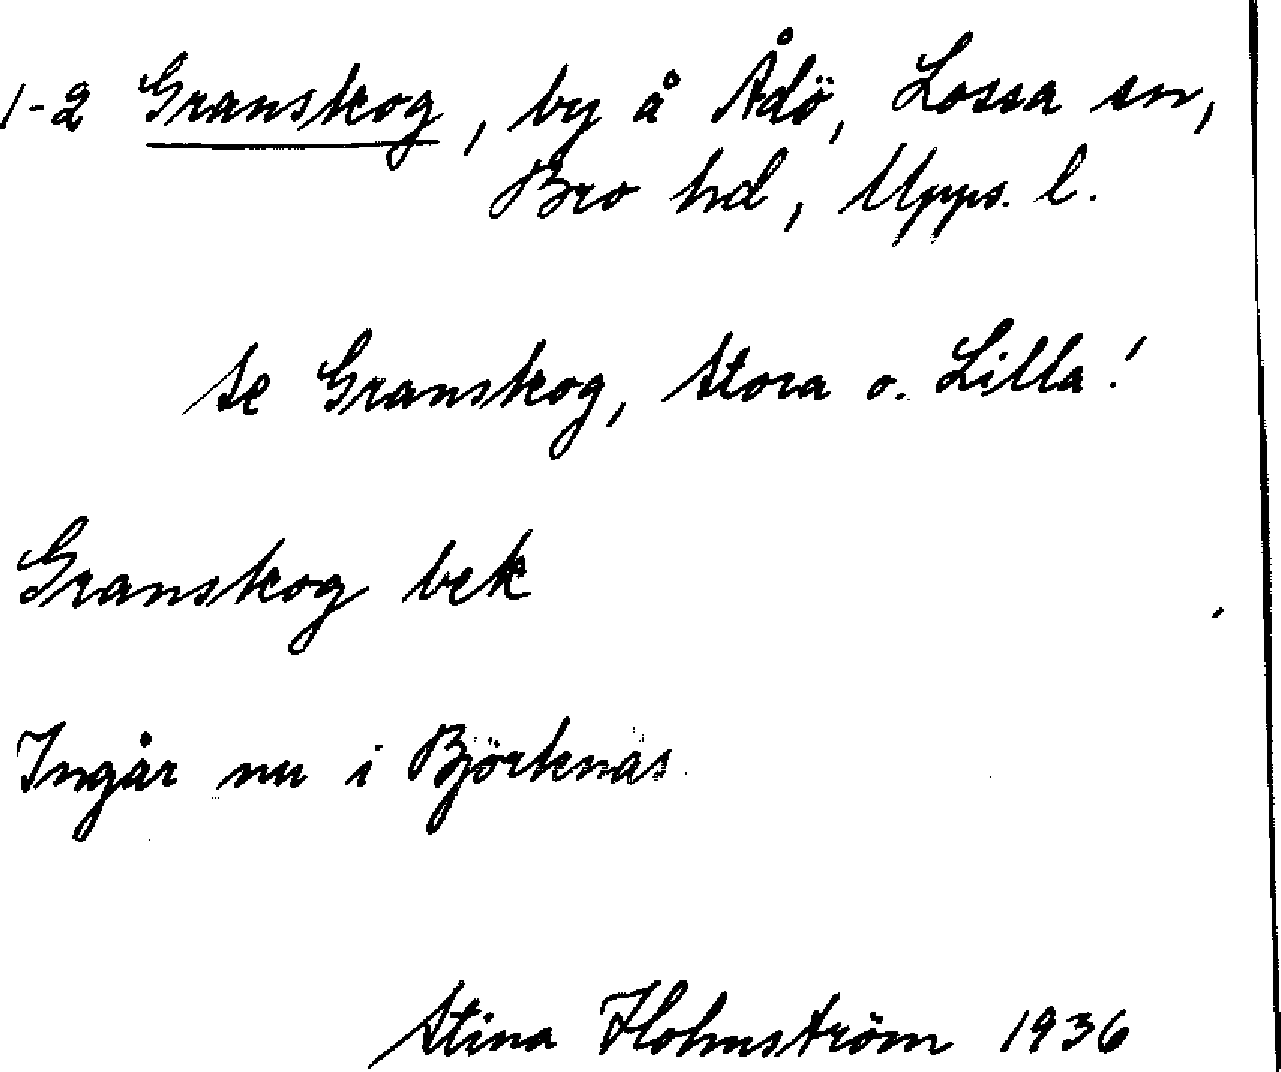 1-2 Granskog, by å Ådö, Lossa sn,
Bro hd, Upps. l.
Se Granskog, Stora o. Lilla!
Granskog bek
Ingår nu i Björknäs.
Stina Holmström 1936